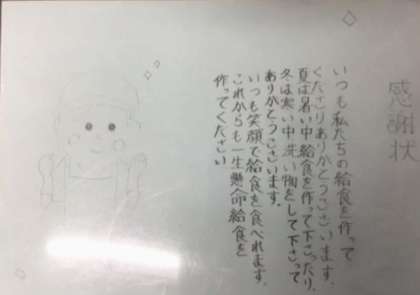 感謝状
いつも私たちの給食を作って
くださりありがとうございます。
夏は暑い中給食を作って下さったり、
冬は寒い中洗い物をして下さって
ありがとうございます。
いつも笑顔で給食を食べれます。
これからも一生懸命給食を
作ってください